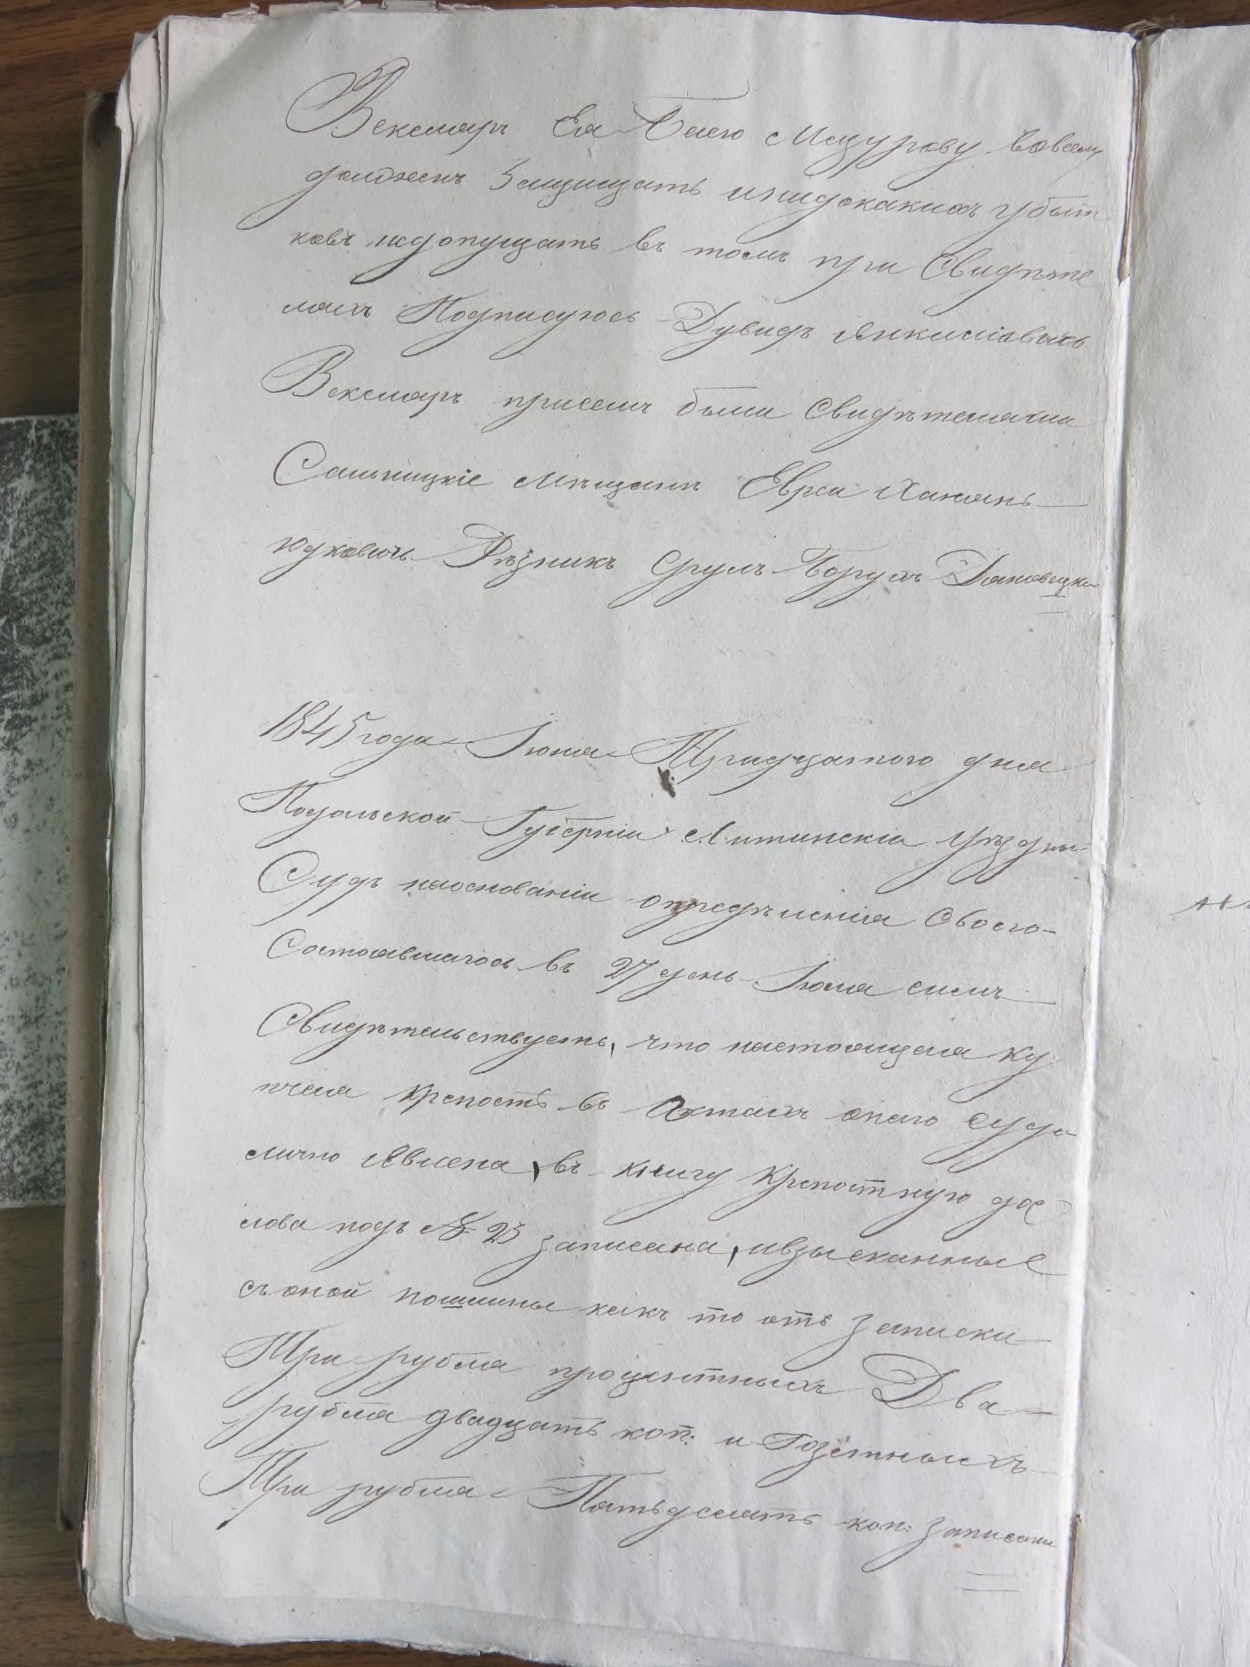 Векслеръ Ея Белю Мазурову вовсемъ
долженъ Защищать инидокакихъ убыт
ковъ недопущать въ томъ при Свидѣте
ляхъ Подписуюсь Дувидъ Янкилiовичь
Векслеръ присемъ были Свидѣтелями
Сальницкiе мѣщане Евреи Хаимъ
Юдковичь Рѣзникъ Срулъ Борухъ Дяновецки
1845 года Iюня Тридцатого дня
Подольской Губернiи Литинскiй уѣздны
Судъ наоснованiи опредѣленiя Своего
Состоявшагося въ 27 день Iюня симъ
Свидѣтельствуетъ, что настоящая ку
пчая крепость въ Актахъ онаго Суда
лично Явлена, въ книгу крепостную до
слова подъ № 23 записана, ивзысканные
съ оной пошлины какъ то отъ записки
Три рубля процентныхъ Два
рубля двадцать коп: и Газетныхъ
Три рубля Пятьдесятъ коп: записаны